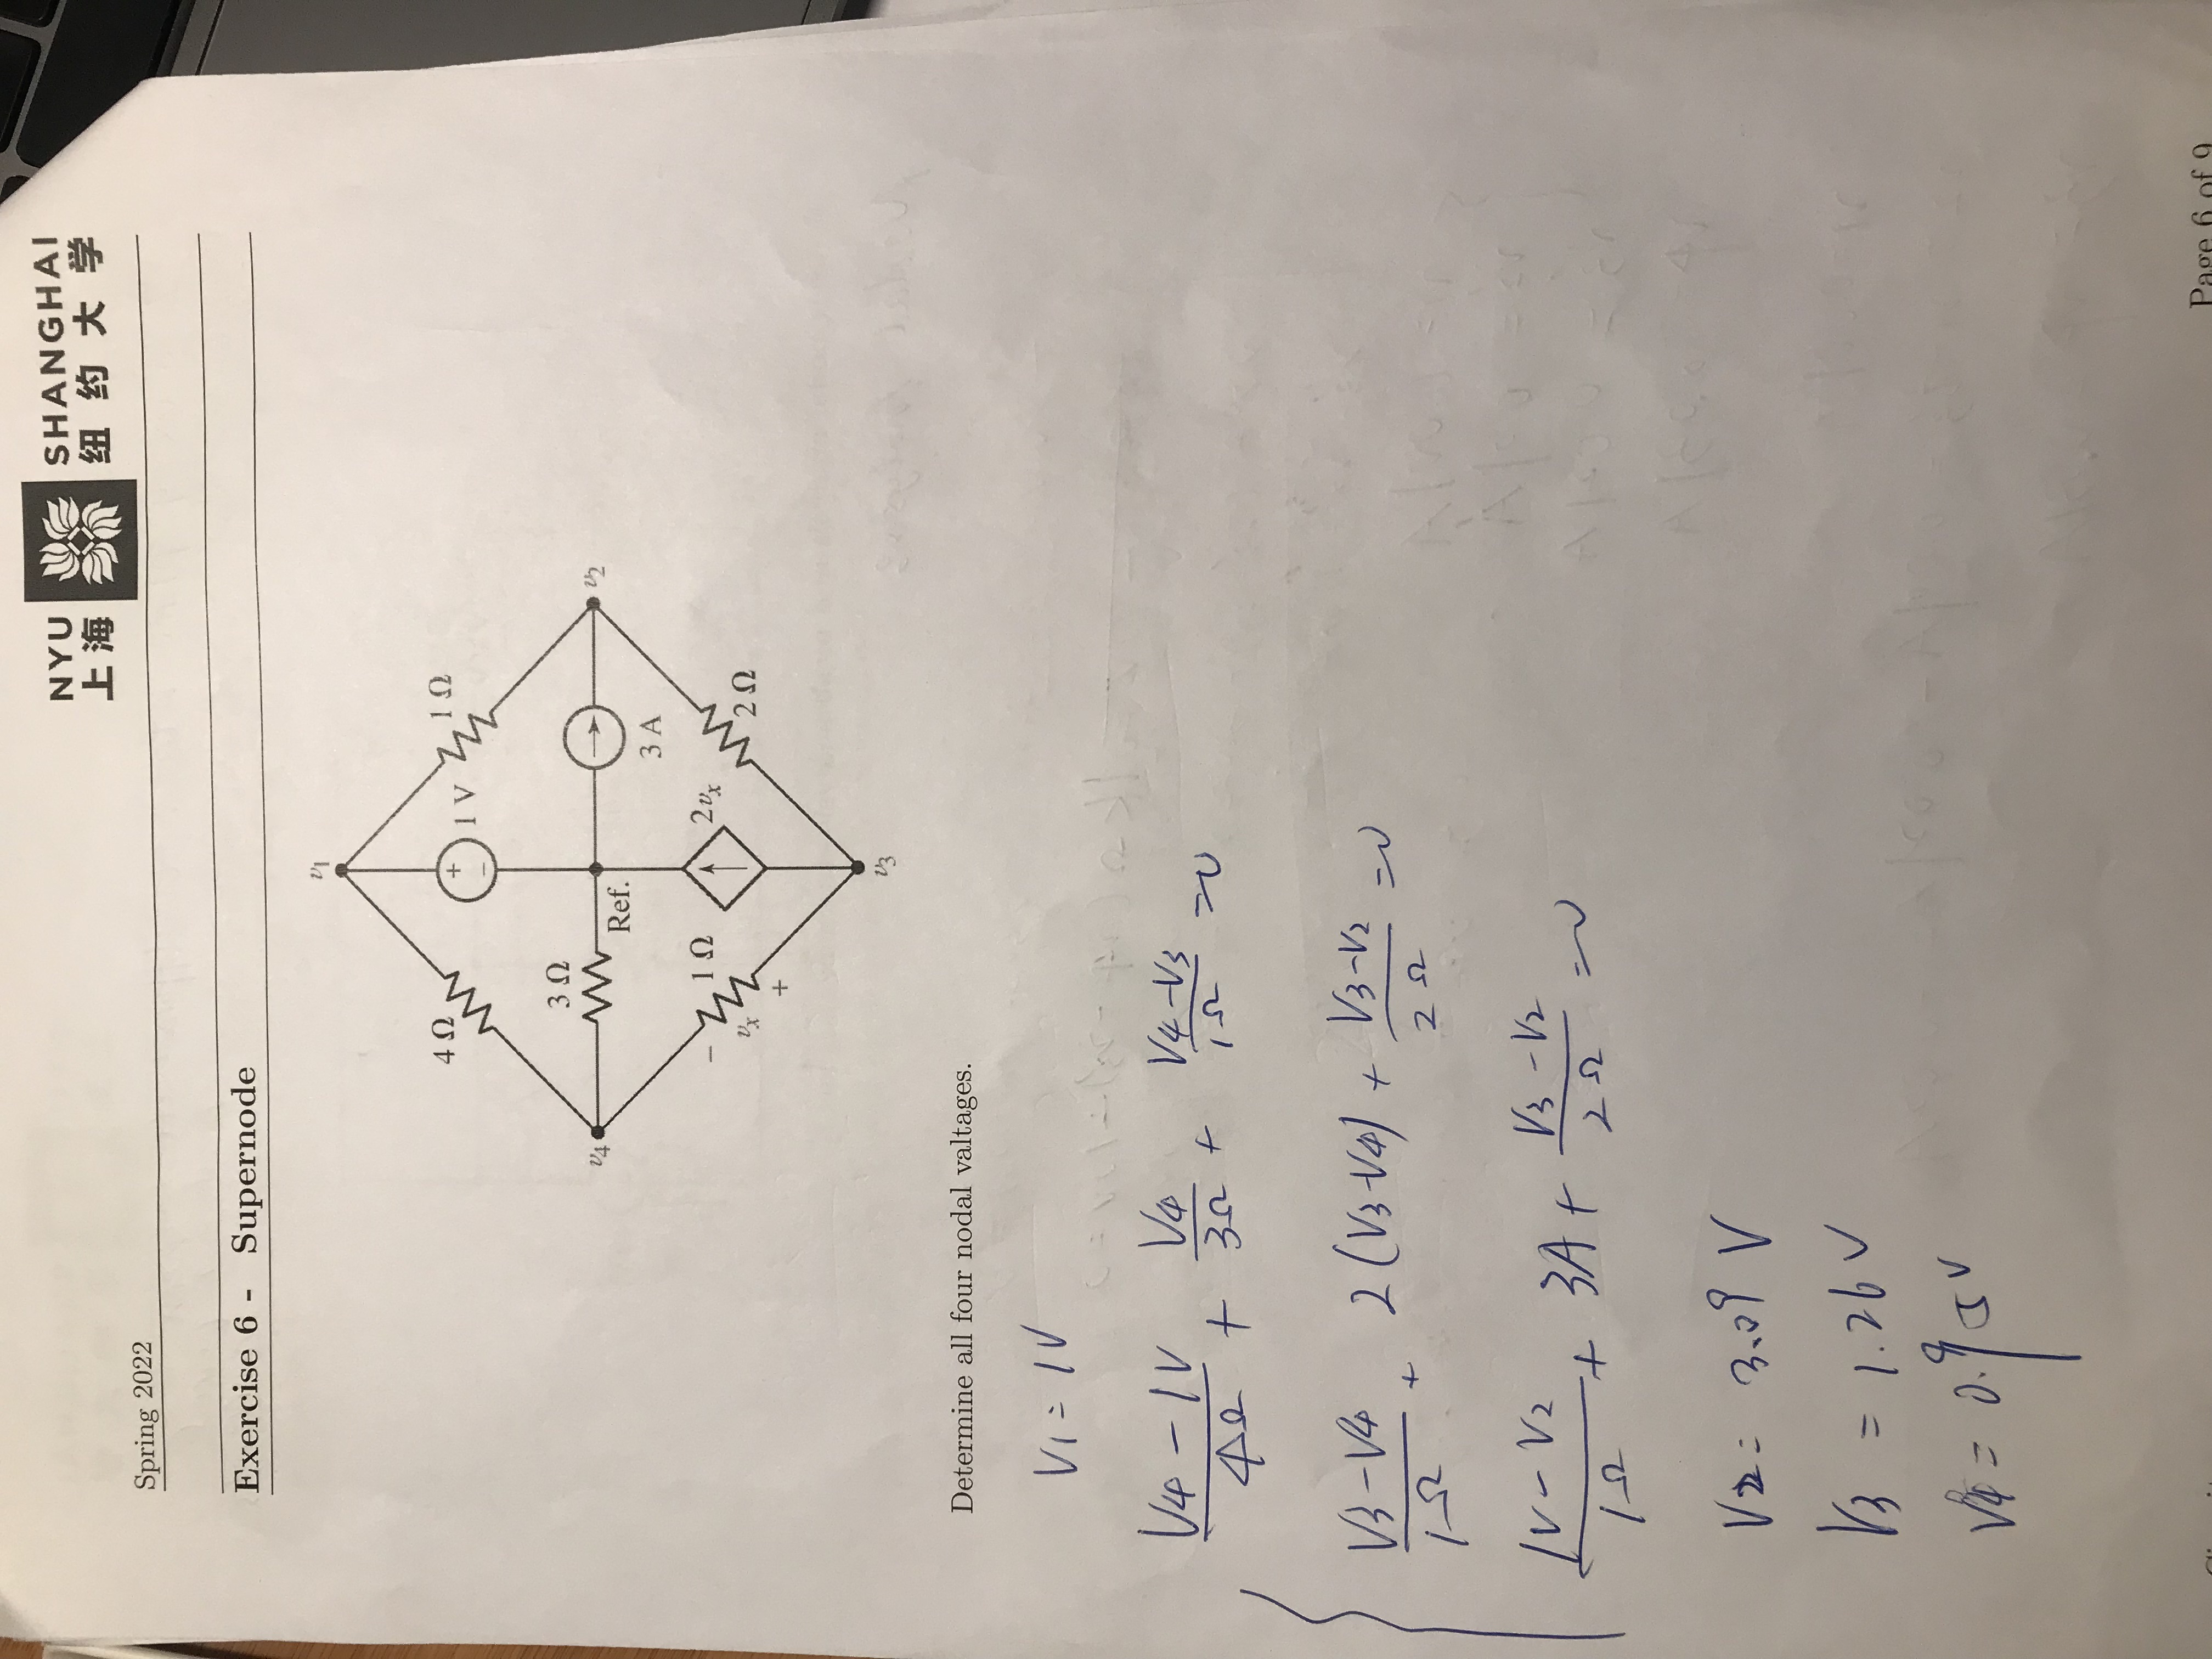 NYU SHANGHAI
上海 纽约大学
Spring 2022
Exercise 6 - Supernode
v1
4 Ω
+
−
1 V
1 Ω
3 Ω
v4
Ref.
v2
3 A
−
1 Ω
vx
+
2vx
2 Ω
v3
Determine all four nodal valtages.
V1 = 1V
(V4 - 1V)/4Ω + V4/3Ω + (V4 - V3)/1Ω = 0
(V3 - V4)/1Ω + 2(V3 - V4) + (V3 - V2)/2Ω = 0
(1V - V2)/1Ω + 3A + (V3 - V2)/2Ω = 0
V2 = 3.09 V
V3 = 1.26 V
V4 = 0.95 V
Page 6 of 9